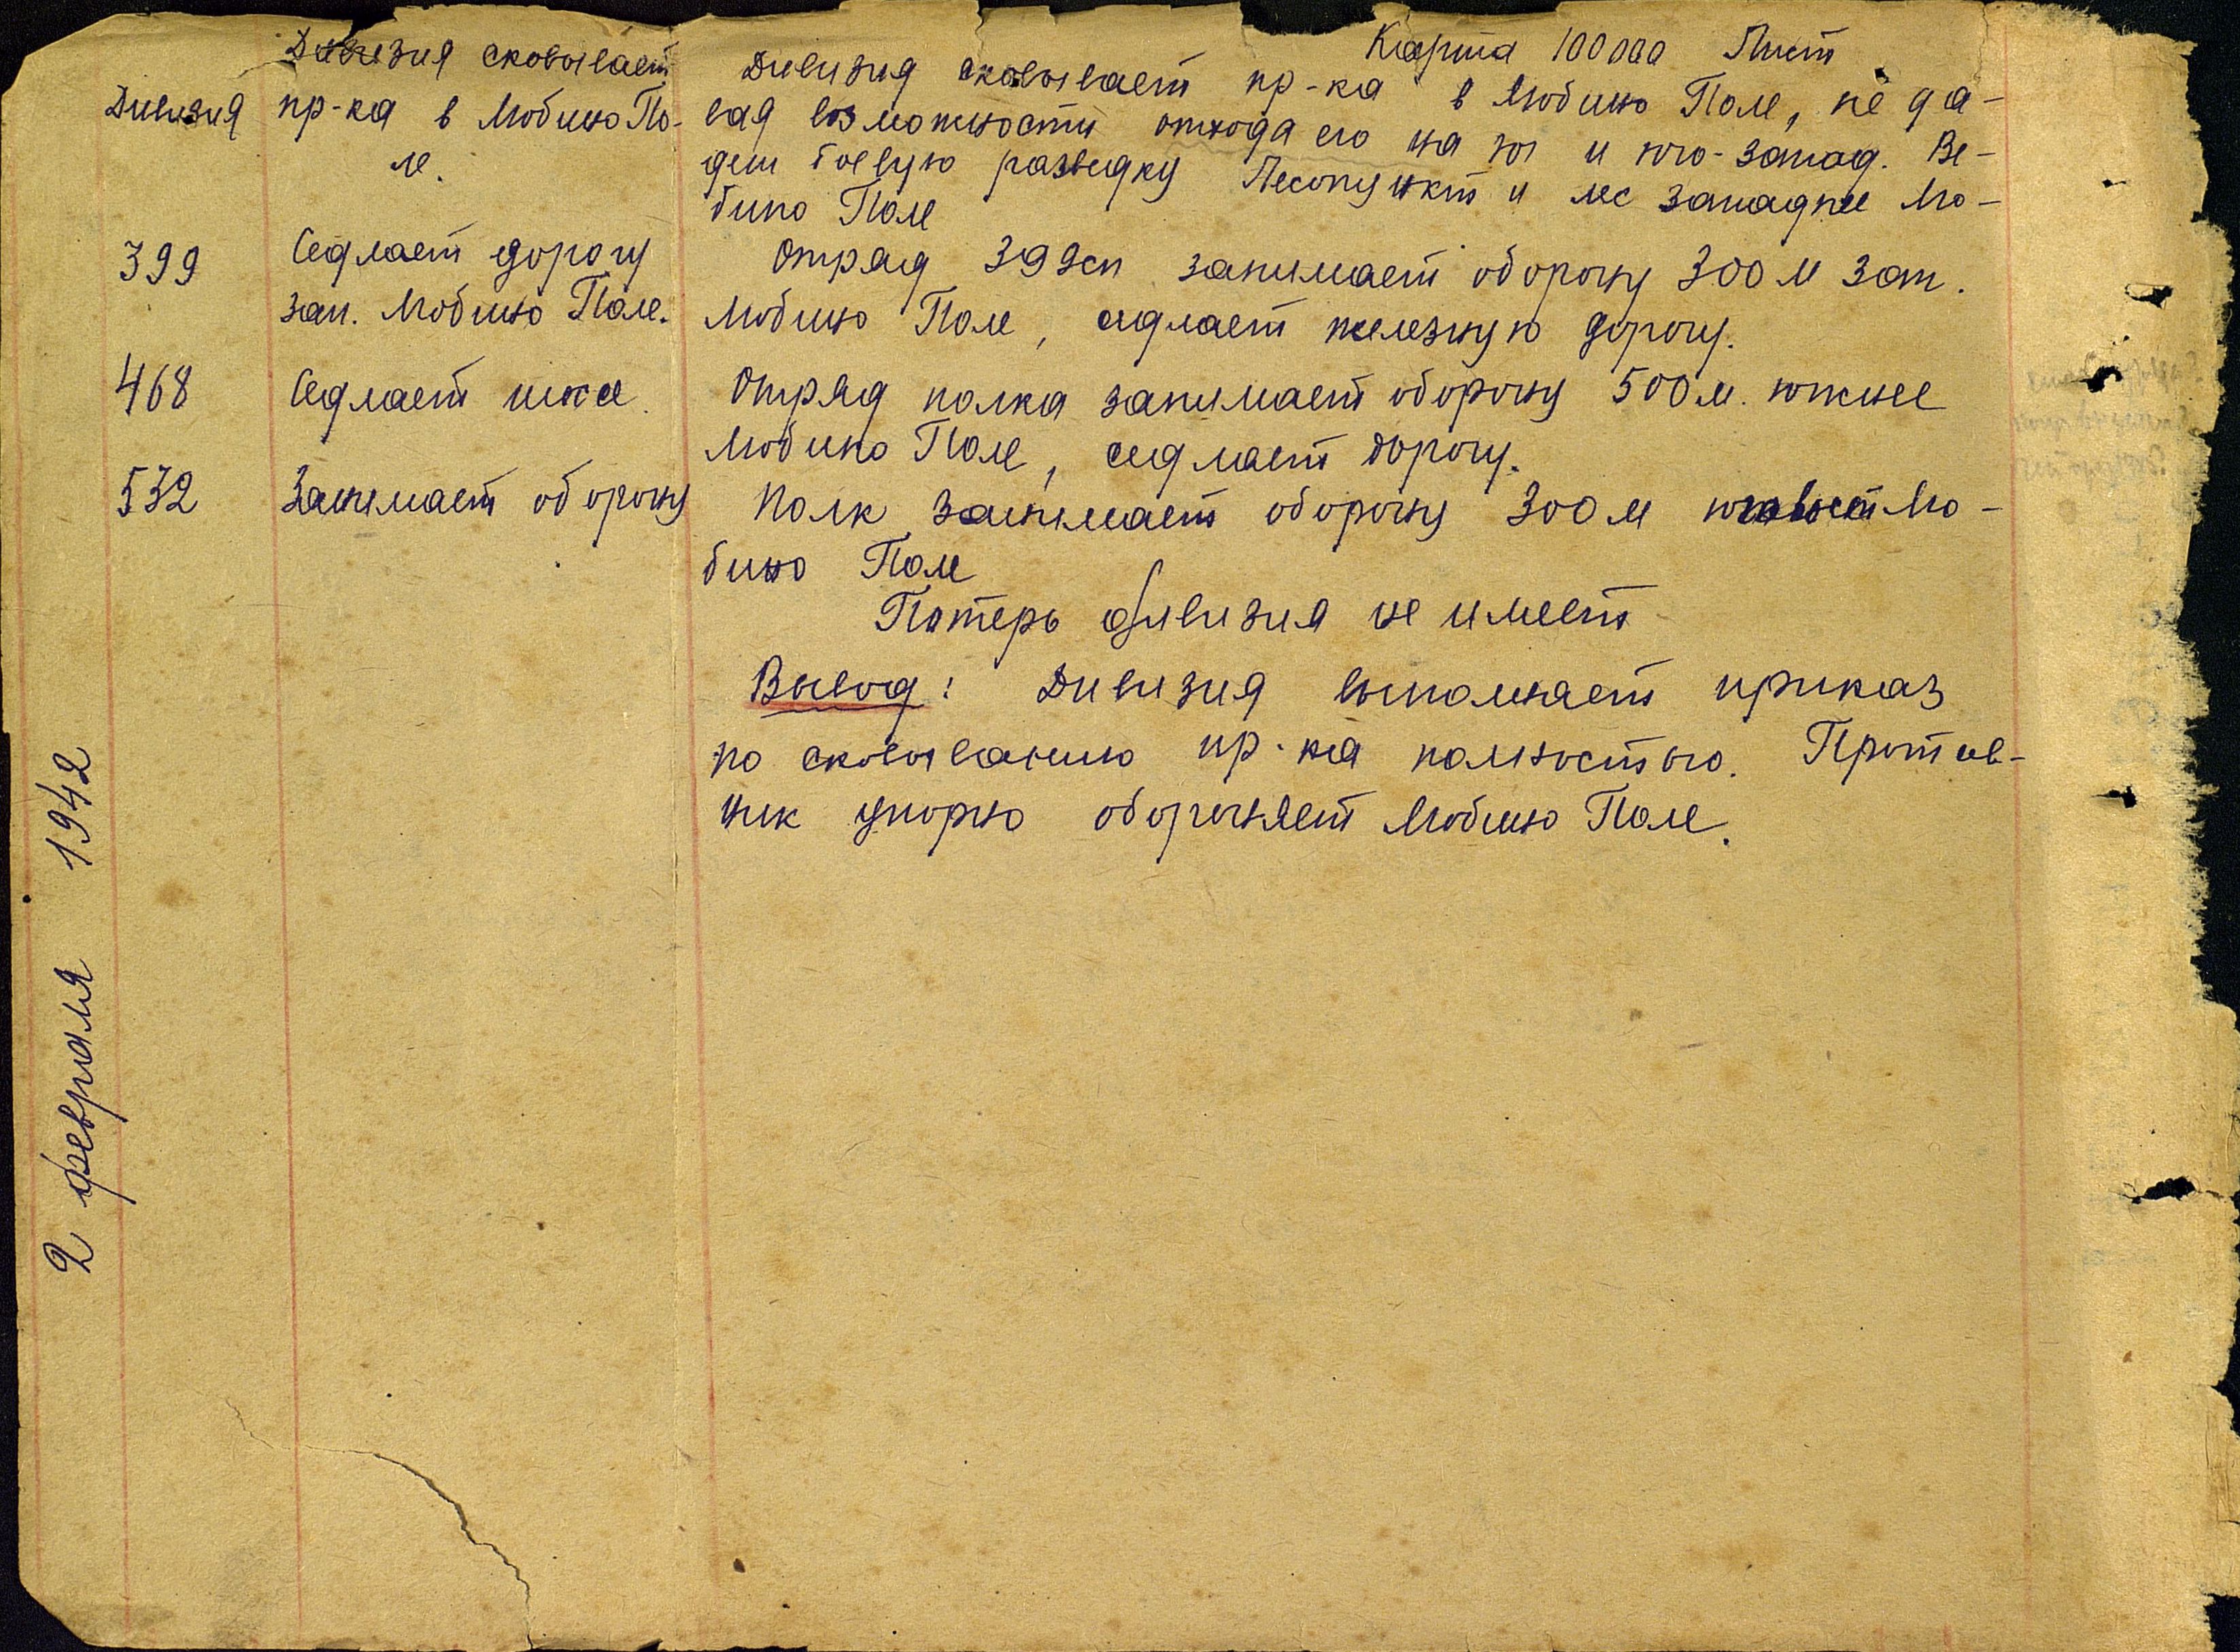 Карта 100 000 Лист
Дивизия
Дивизия сковывает
пр-ка в Любино По-
ле.
Дивизия сковывает пр-ка в Любино Поле, не да-
вая возможности отхода его на юг и юго-запад. Ве-
дет боевую разведку Лесопункт и лес западнее Лю-
бино Поле
399
Седлает дорогу
зап. Любино Поле.
Отряд 399сп занимает оборону 300 м зап.
Любино Поле, седлает железную дорогу.
468
Седлает шоссе
Отряд полка занимает оборону 500 м. южнее
Любино Поле, седлает дорогу.
532
Занимает оборону
Полк занимает оборону 300 м Лю-
бино Поле
Потерь дивизия не имеет
Вывод: Дивизия выполняет приказ
по сковыванию пр-ка полностью. Против-
ник упорно обороняет Любино Поле.
2 февраля 1942